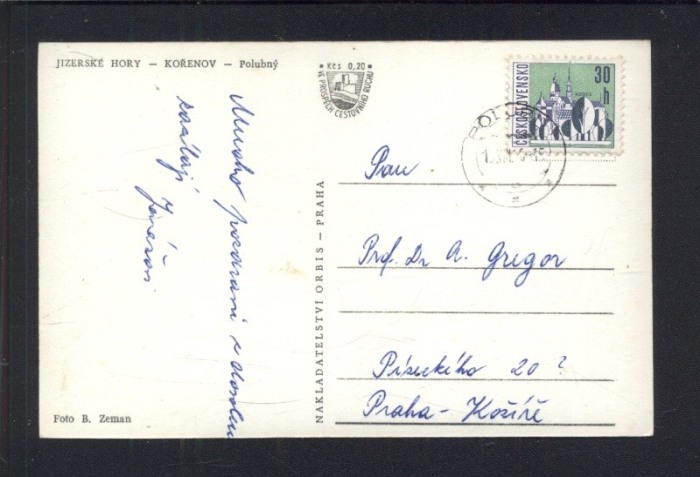 JIZERSKÉ HORY – KOŘENOV – Polubný
Kčs 0,20
VE PROSPĚCH CESTOVNÍHO RUCHU
ČESKOSLOVENSKO
30 h
Mnoho pozdravů z dovolené
zasílají
NAKLADATELSTVÍ ORBIS – PRAHA
Pan
Prof. Dr A. Gregor
Píseckého 20
Praha - Košíře
Foto B. Zeman